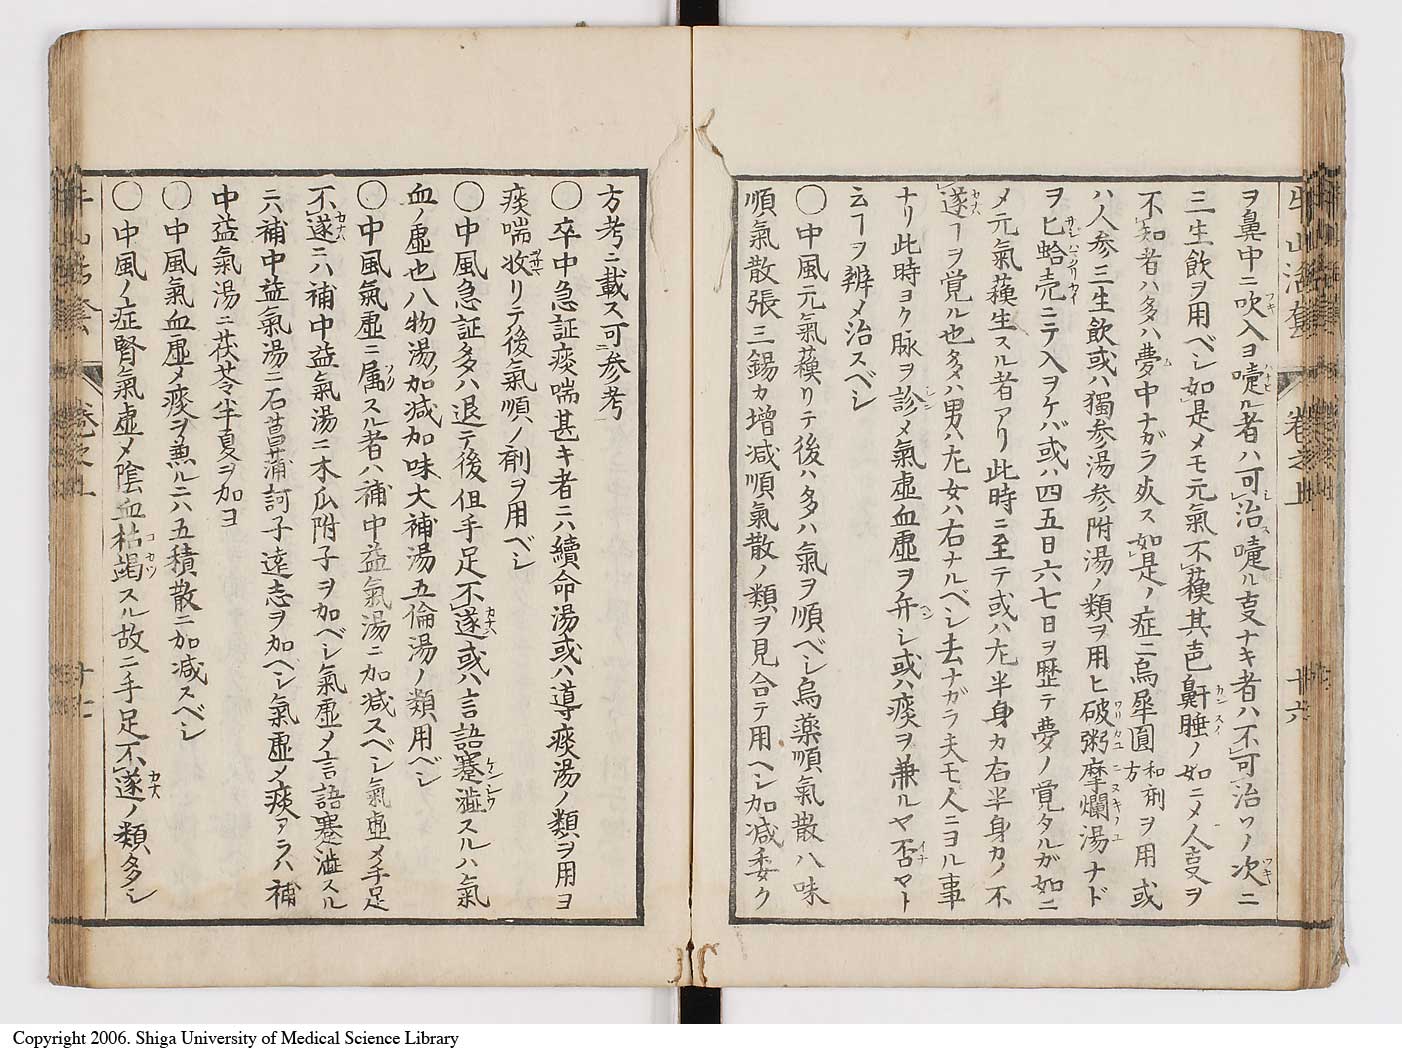 ヲ鼻中ニ吹入ヨ嚏ル者ハ可治嚏ル支ナキ者ハ不可治ワノ次ニ
三生飲ヲ用ベシ如是メモ元氣不蘓其声鼾睡ノ如ニメ人叓ヲ
不知者ハ多ハ夢中ナガラ死ス如是ノ症ニ烏犀圓和剤方ヲ用或
ハ人参三生飲或ハ獨参湯参附湯ノ類ヲ用ヒ破粥摩爛湯ナド
ヲヒ蛤売ニテ入ヲケバ或ハ四五日六七日ヲ歴テ夢ノ覚タルガ如ニ
メ元氣蘓生スル者アリ此時ニ至テ或ハ左半身カ右半身カノ不
遂ヿヲ覚ル也多ハ男ハ左女ハ右ナルベシ去ナガラ夫モ人ニヨル事
ナリ此時ヨク脉ヲ診メ氣虚血虚ヲ弁シ或ハ痰ヲ兼ルヤ否ヤト
云ヿヲ辨メ治スベシ
〇中風元氣蘓リテ後ハ多ハ氣ヲ順ベシ烏薬順氣散八味
順氣散張三錫カ増減順氣散ノ類ヲ見合テ用ヘシ加减委ク
方考ニ載ス可参考
〇卒中急証痰喘甚キ者ニハ續命湯或ハ導痰湯ノ類ヲ用ヨ
痰喘收リテ後氣順ノ剤ヲ用ベシ
〇中風急証多ハ退テ後但手足不遂或ハ言語蹇澁スルハ氣
血ノ虚也八物湯加减加味大補湯五倫湯ノ類用ベシ
〇中風氣虚ニ属スル者ハ補中益氣湯ニ加减スベシ氣虚メ手足
不遂ニハ補中益氣湯ニ木瓜附子ヲ加ベシ氣虚メ言語蹇澁スル
ニハ補中益氣湯ニ石菖蒲訶子遠志ヲ加ヘシ氣虚メ痰アラハ補
中益氣湯ニ茯苓半夏ヲ加ヨ
〇中風氣血虚メ痰ヲ兼ルニハ五積散ニ加减スベシ
〇中風ノ症腎氣虚メ陰血枯竭スル故ニ手足不遂ノ類多シ
牛山活套 卷之上 十六
Copyright 2006. Shiga University of Medical Science Library